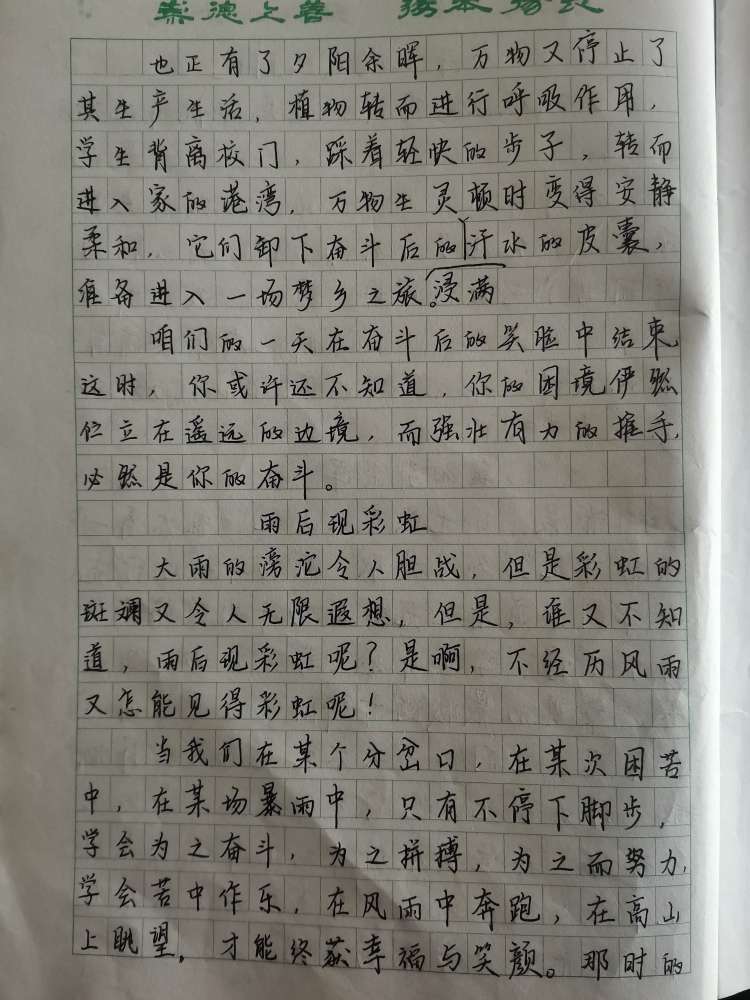 崇德上善
也正有了夕阳余晖，万物又停止了
其生产生活，植物转而进行呼吸作用，
学生背离校门，踩着轻快的步子，转而
进入家的港湾，万物生灵顿时变得安静
柔和，它们卸下奋斗后的汗水的皮囊，
准备进入一场梦乡之旅。浸满
咱们的一天在奋斗后的笑脸中结束，
这时，你或许还不知道，你的困境伊然
伫立在遥远的边境，而强壮有力的推手，
必然是你的奋斗。
雨后现彩虹
大雨的滂沱令人胆战，但是彩虹的
斑斓又令人无限遐想，但是，谁又不知
道，雨后现彩虹呢？是啊，不经历风雨
又怎能见得彩虹呢！
当我们在某个分岔口，在某次困苦
中，在某场暴雨中，只有不停下脚步，
学会为之奋斗，为之拼搏，为之而努力，
学会苦中作乐，在风雨中奔跑，在高山
上眺望，才能终获幸福与笑颜。那时的